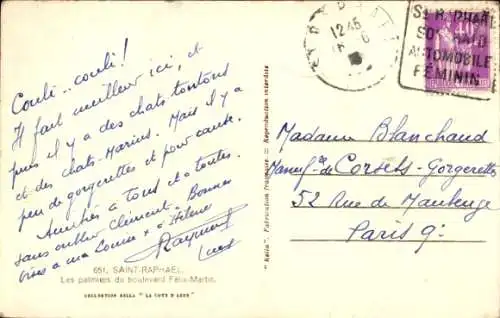 Couli.. couli!
Il fait meilleur ici, et
puis il y a des chats toutous
et des chats-Marius. Mais il y a
peu de gorgerettes et pour cause.
Amitiés à tous et à toutes.
sans oublier Clément. Bonnes
bises à ma Louise et à Hélène
Raymond
651. SAINT-RAPHAËL.
Les palmiers du boulevard Félix-Martin.
COLLECTION RELLA "LA COTE D'AZUR"
"Rella". Fabrication française — Reproduction interdite
12 45
6
ST R.PHAEL
SON RAID
AUTOMOBILE
FÉMININ
40
Madame Blanchaud
Manuf. re de Corsets-Gorgerettes
52 Rue de Maubeuge
Paris 9.